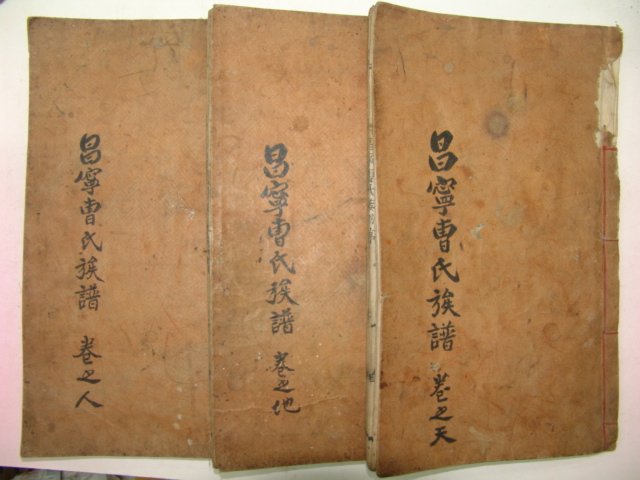 昌寧曺氏族譜 卷之天
昌寧曺氏族譜 卷之地
昌寧曺氏族譜 卷之人